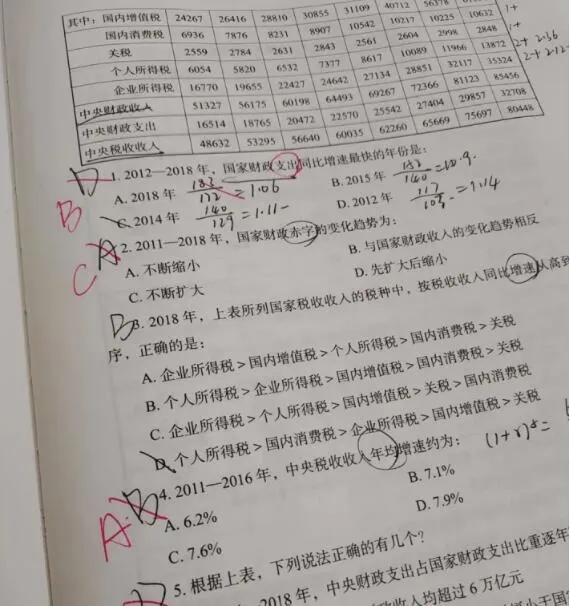 其中：国内增值税 24267 26416 28810 30855 31109 40712 56378
国内消费税 6936 7876 8231 8907 10542 10217 10225 10632
关税 2559 2784 2631 2843 2561 2604 2998 2848
个人所得税 6054 5820 6532 7377 8617 10089 11966 13872
企业所得税 16770 19655 22427 24642 27134 28851 32117 35324
中央财政收入 51327 56175 60198 64493 69267 72366 81123 85456
中央财政支出 16514 18765 20472 22570 25542 27404 29857 32708
中央税收收入 48632 53295 56640 60035 62260 65669 75697 80448
D 1. 2012—2018 年，国家财政支出同比增速最快的年份是：
B
A. 2018 年 =1.06 B. 2015 年
C. 2014 年 140/129 =1.11 D. 2012 年 =1.14
A 2. 2011—2018 年，国家财政赤字的变化趋势为：
C
A. 不断缩小 B. 与国家财政收入的变化趋势相反
C. 不断扩大 D. 先扩大后缩小
B 3. 2018 年，上表所列国家税收收入的税种中，按税收收入同比增速从高到
序，正确的是：
A. 企业所得税＞国内增值税＞个人所得税＞国内消费税＞关税
B. 个人所得税＞企业所得税＞国内增值税＞国内消费税＞关税
C. 企业所得税＞个人所得税＞国内增值税＞关税＞国内消费税
D. 个人所得税＞国内消费税＞企业所得税＞国内增值税＞关税
B 4. 2011—2016 年，中央税收收入年均增速约为： (1+r)⁵=
A
A. 6.2% B. 7.1%
C. 7.6% D. 7.9%
5. 根据上表，下列说法正确的有几个？
2018 年，中央财政支出占国家财政支出比重逐年
政收入均超过 6 万亿元